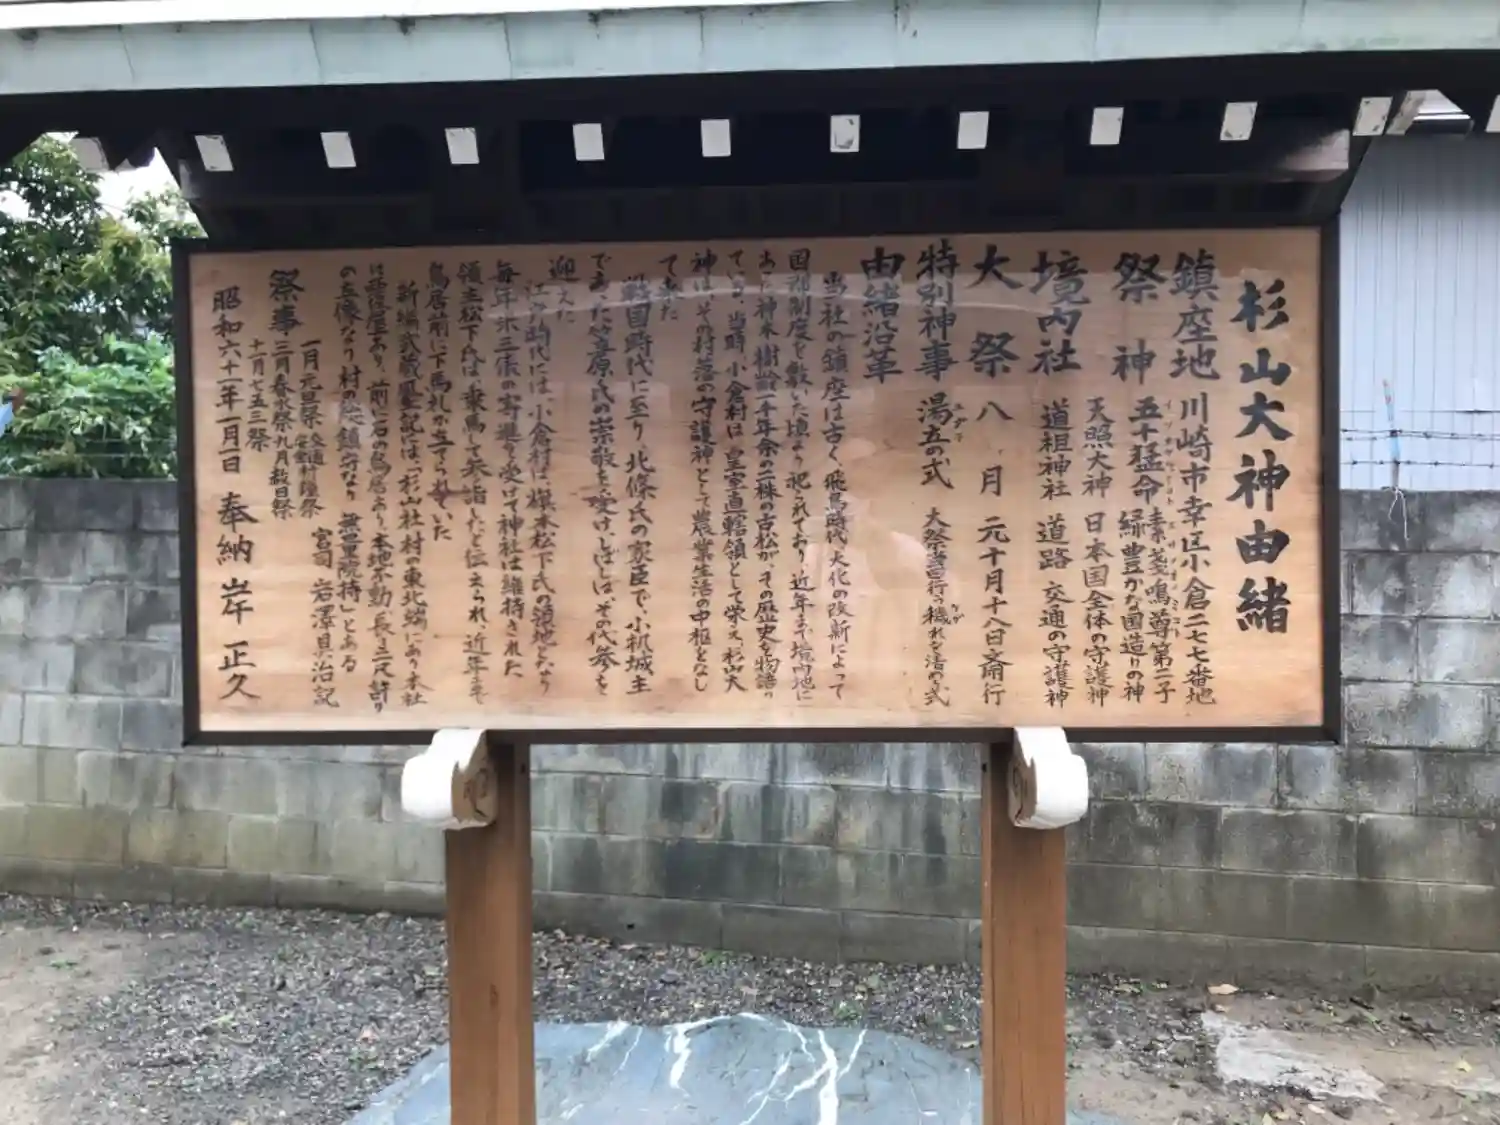 杉山大神由緒
鎮座地 川崎市幸区小倉二七七番地
祭神 五十猛命 素戔鳴尊第二子
緑豊かな国造りの神
天照大神 日本国全体の守護神
境内社 道祖神社 道路 交通の守護神
大祭 八月 元十月十八日斎行
特別神事 湯立の式 大祭当日行う 穢れを清め式
由緒沿革
当社の鎮座は古く、飛鳥時代、大化の改新によって
国郡制度を敷いた頃より祀られており、近年まで境内地に
あった神木、樹齢一千年余の二株の古松が、その歴史を物語っ
ている。当時、小倉村は、皇室直轄領として栄え、杉山大
神は、その村落の守護神として農業生活の中枢をなし
て来た
戦国時代に至り、北條氏の家臣で、小机城主
であった笠原氏の崇敬を受け、しばしば、その代参を
迎えた
江戸時代には、小倉村は、旗本松下氏の領地となり
毎年米三俵の寄進を受けて神社は維持された
領主松下氏は、乗馬して参詣したと伝えられ、近年まで
鳥居前に下馬札が立てられていた
新編武蔵風土記には、「杉山社 村の東北端にあり 本社
は 前に石の鳥居あり 本地不動 長二尺許り
の立像なり 村の総鎮守なり 無量院持」とある
祭事 一月 元旦祭 交通安全祈願祭
三月 春季祭 九月 敬日祭
十一月 七五三祭
宮司 岩澤貝治 記
昭和六十一年一月一日 奉納 岸 正久